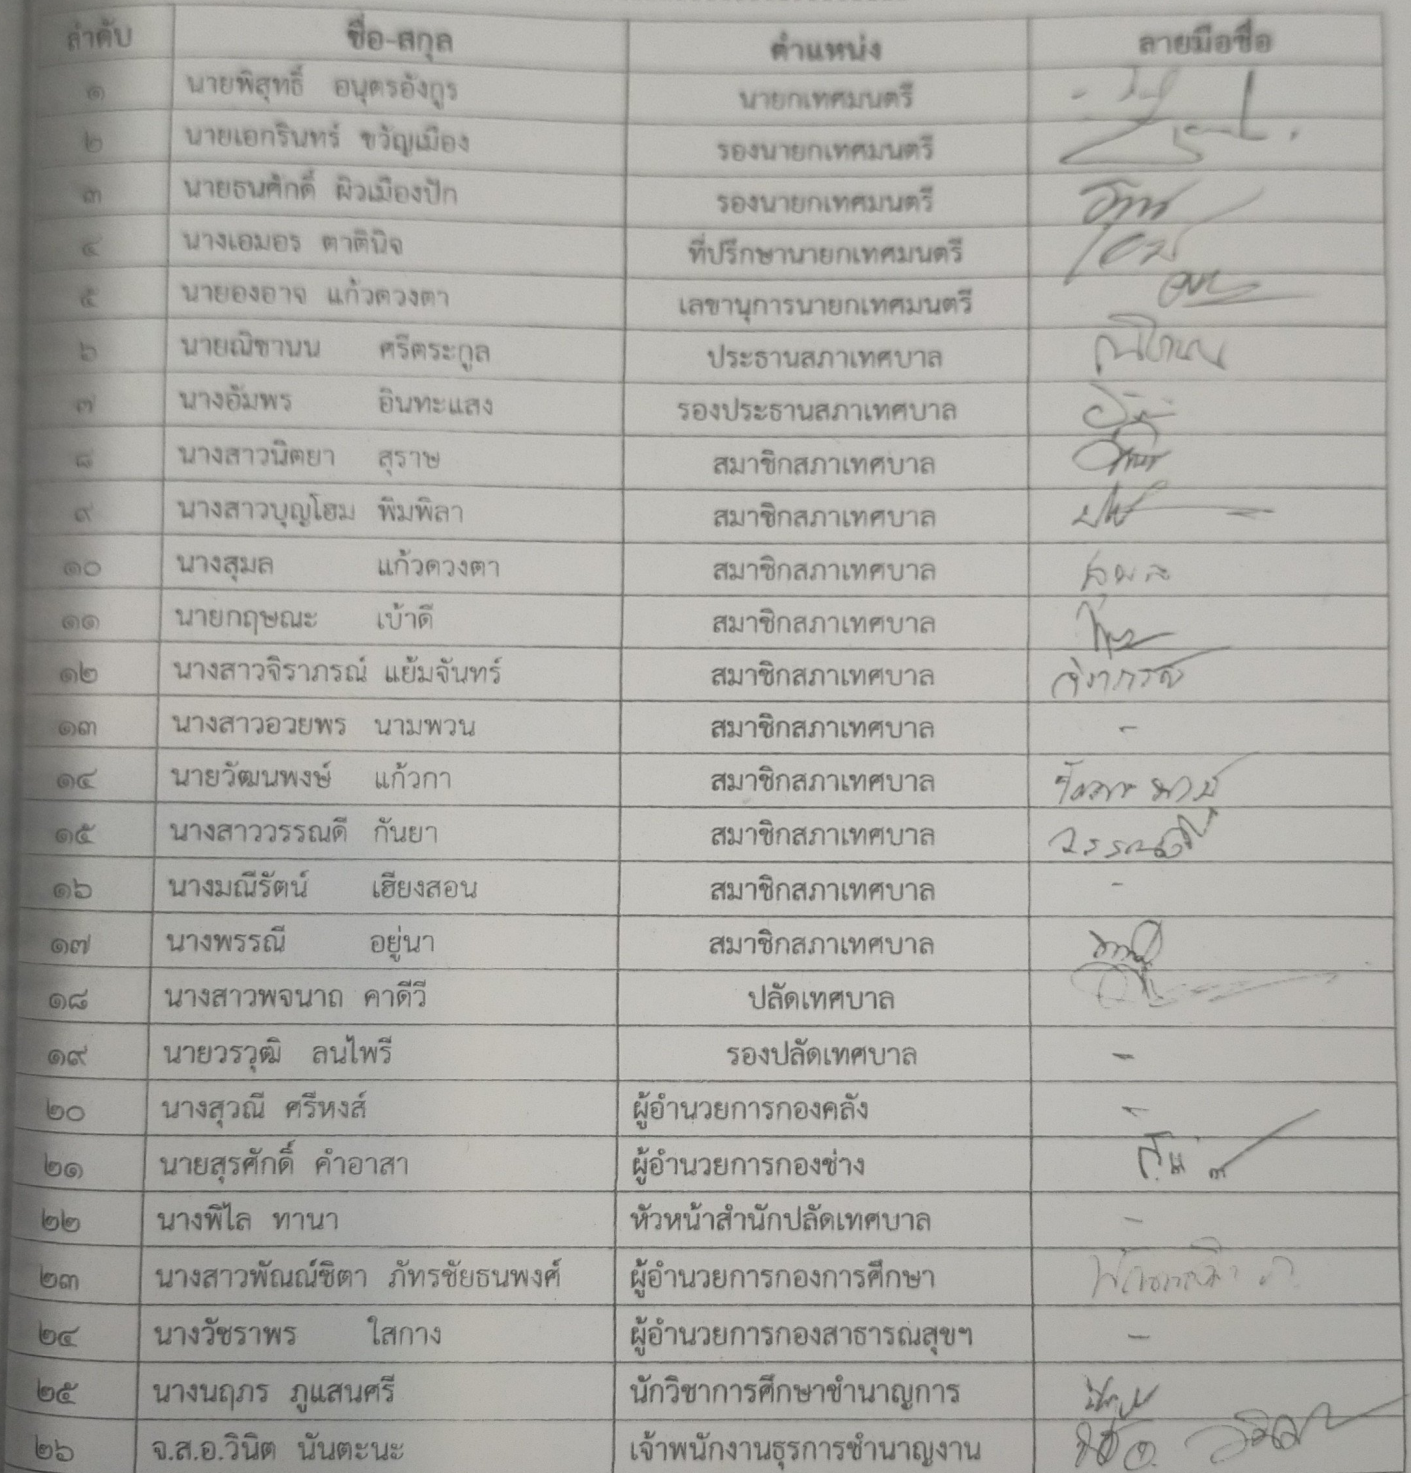 ลำดับ ชื่อ-สกุล ตำแหน่ง ลายมือชื่อ
๑ นายพิสุทธิ์ อนุตรอังกูร นายกเทศมนตรี
๒ นายเอกรินทร์ ขวัญเมือง รองนายกเทศมนตรี
๓ นายธนศักดิ์ ผิวเมืองปัก รองนายกเทศมนตรี
๔ นางเอมอร ตาตินิจ ที่ปรึกษานายกเทศมนตรี
๕ นายองอาจ แก้วดวงตา เลขานุการนายกเทศมนตรี
๖ นายณิชานน ศรีตระกูล ประธานสภาเทศบาล
๗ นางอัมพร อินทะแสง รองประธานสภาเทศบาล
๘ นางสาวนิตยา สุราษ สมาชิกสภาเทศบาล
๙ นางสาวบุญโฮม พิมพิลา สมาชิกสภาเทศบาล
๑๐ นางสุมล แก้วดวงตา สมาชิกสภาเทศบาล สุมล
๑๑ นายกฤษณะ เบ้าดี สมาชิกสภาเทศบาล
๑๒ นางสาวจิราภรณ์ แย้มจันทร์ สมาชิกสภาเทศบาล จิราภรณ์
๑๓ นางสาวอวยพร นามพวน สมาชิกสภาเทศบาล -
๑๔ นายวัฒนพงษ์ แก้วกา สมาชิกสภาเทศบาล
๑๕ นางสาววรรณดี กันยา สมาชิกสภาเทศบาล วรรณดี
๑๖ นางมณีรัตน์ เฮียงสอน สมาชิกสภาเทศบาล -
๑๗ นางพรรณี อยู่นา สมาชิกสภาเทศบาล
๑๘ นางสาวพจนาถ คาดีวี ปลัดเทศบาล
๑๙ นายวรวุฒิ ลนไพรี รองปลัดเทศบาล -
๒๐ นางสุวณี ศรีหงส์ ผู้อำนวยการกองคลัง -
๒๑ นายสุรศักดิ์ คำอาสา ผู้อำนวยการกองช่าง
๒๒ นางพิไล ทานา หัวหน้าสำนักปลัดเทศบาล -
๒๓ นางสาวพัณณ์ชิตา ภัทรชัยธนพงศ์ ผู้อำนวยการกองการศึกษา
๒๔ นางวัชราพร ใสกาง ผู้อำนวยการกองสาธารณสุขฯ -
๒๕ นางนฤภร ภูแสนศรี นักวิชาการศึกษาชำนาญการ
๒๖ จ.ส.อ.วินิต นันตะนะ เจ้าพนักงานธุรการชำนาญงาน